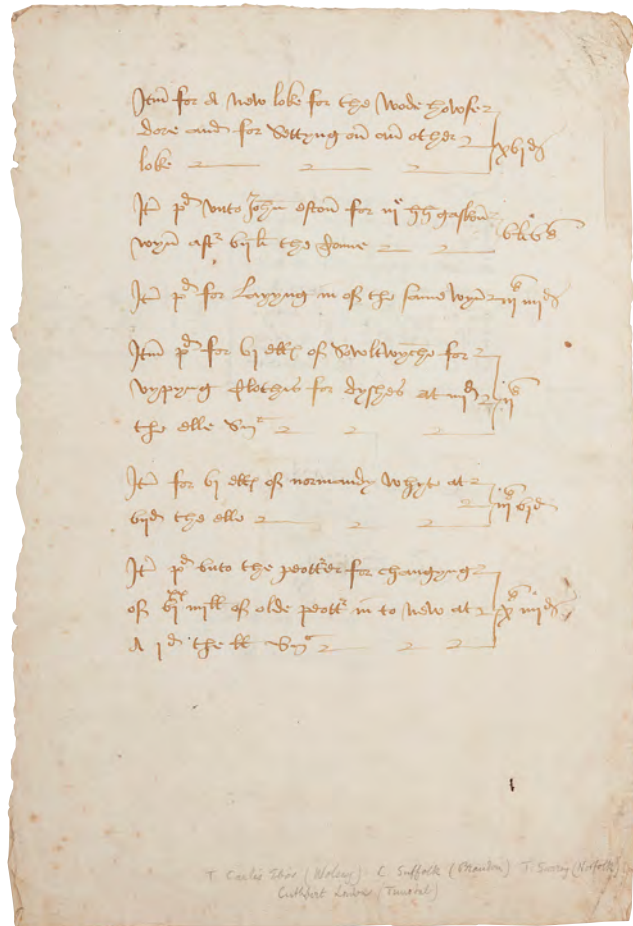 Itm for A new loke for the wode howse
dore and for Settyng on an other xvjd
loke
It pd vnto John eston for iij hh gascon
wyn aftr vij li the
It pd for Layyng in of the same wyn iijs iiijd
Itm pd for vj ell of for
wypyng Clothis for dyshes at iiijd ijs
the elle Sma
It for vj ell of normandy whyte at
vijd the elle iijs vjd
It pd vnto the peotrer for chaungyng
of vjxx iiij ll of olde peottr in to new at xs iiijd
A jd the ll Sma
T. Carlis Ebor (Wolsey) C. Suffolk (Brandon) T. Surrey (Norfolk)
Cuthbert London (Tunstal)